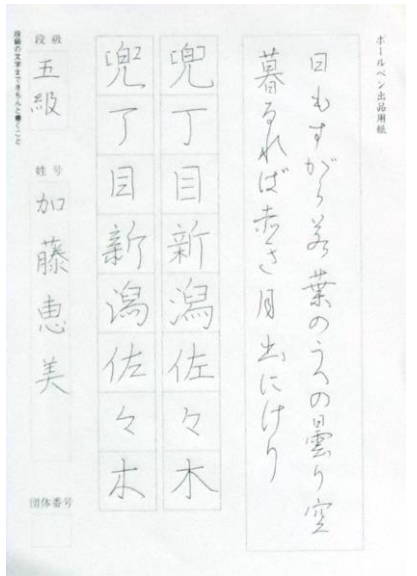 ボールペン出品用紙
日もすがら若葉のうへの曇り空
暮るれば赤き月出にけり
兜丁目新潟佐々木
兜丁目新潟佐々木
段級
五級
姓号
加藤恵美
団体番号
段級の文字まできちんと書くこと